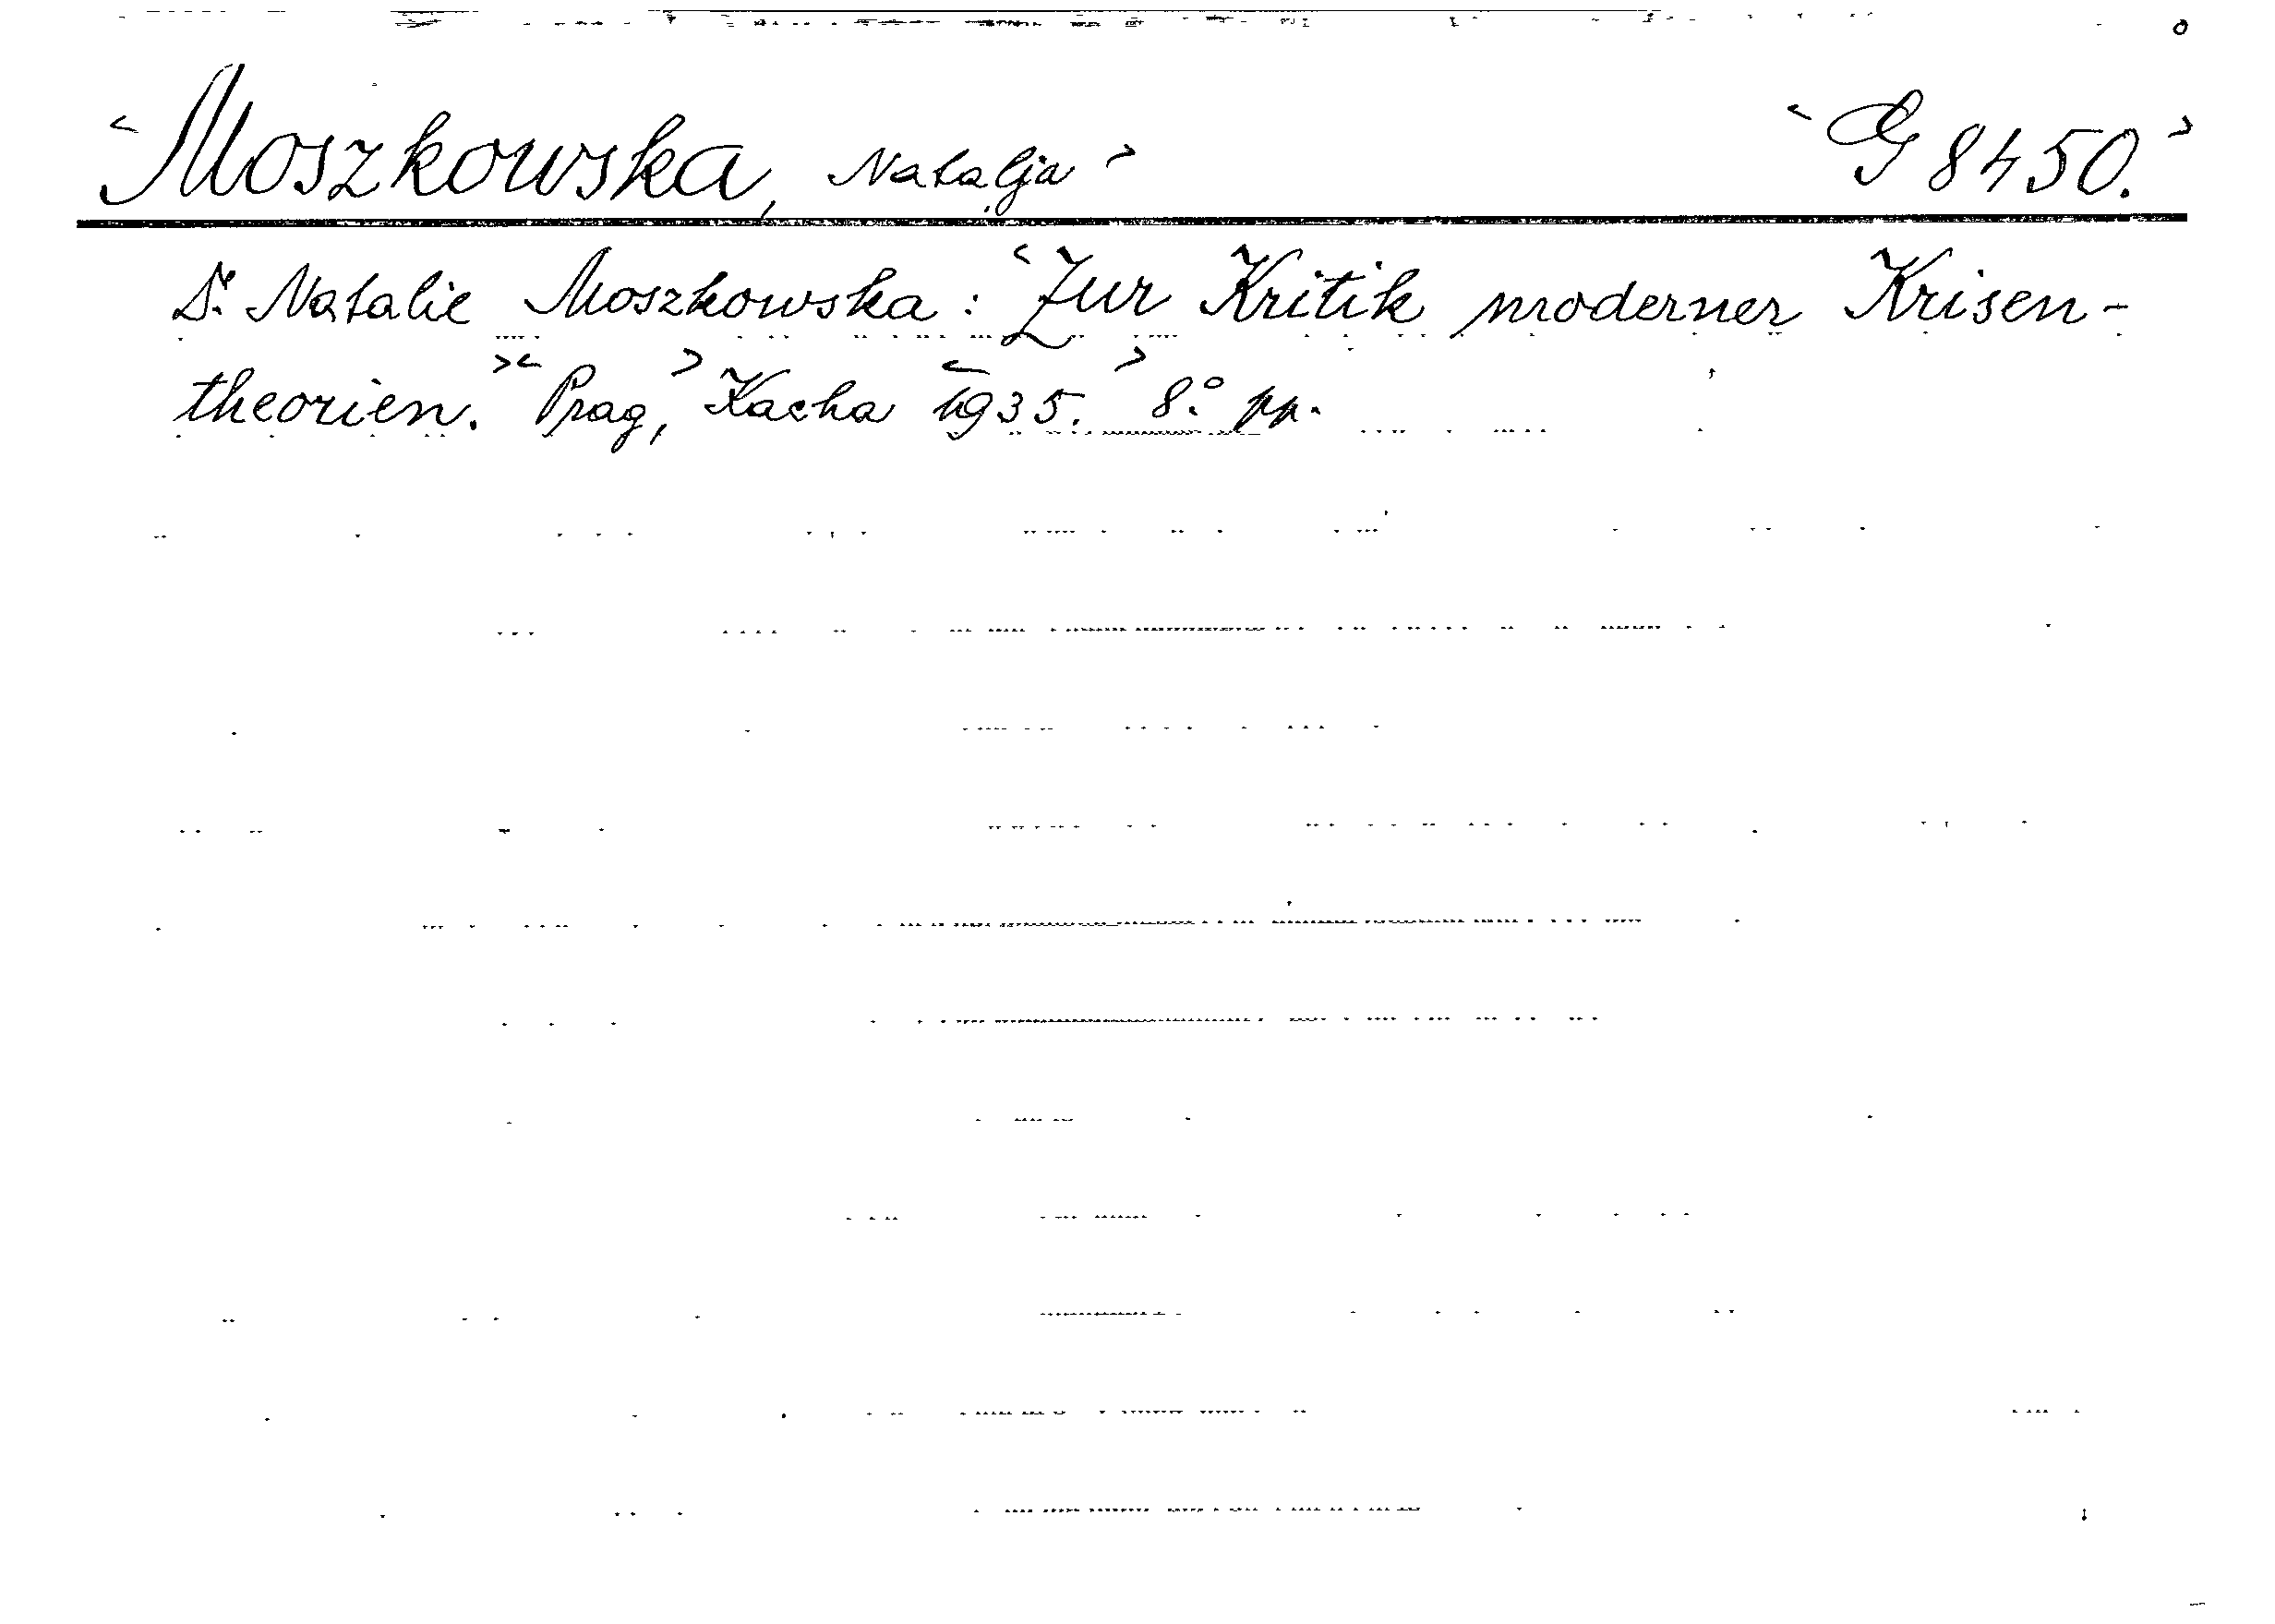 <Moszkowska, Natalja> <G 8450.>
Dr. Natalie Moszkowska: <Zur Kritik moderner Krisen-
theorien.> <Prag,> Kacha <1935.> 8.° pp.